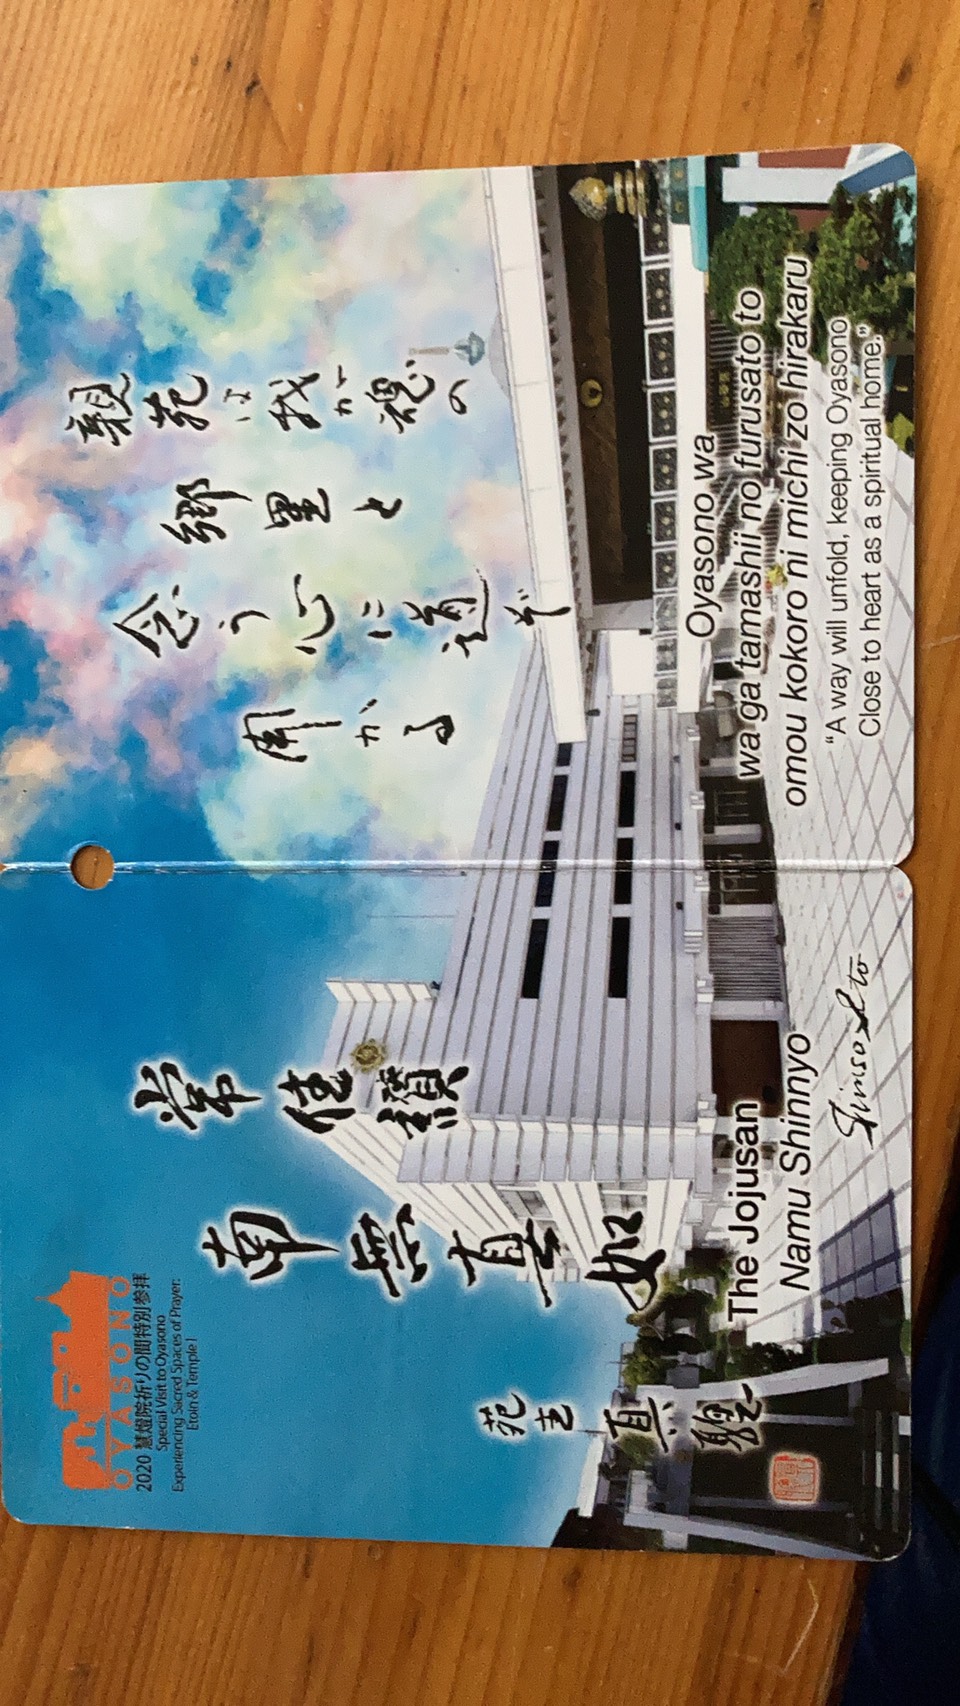 OYASONO
2020 慧燈院祈りの間特別参拝
Special Visit to Oyasono
Experiencing Sacred Spaces of Prayer:
Etoin & Temple I
常住讃
南無真如
苑主 真聰
The Jojusan
Namu Shinnyo
Shinso Ito
親苑は我が魂の
郷里と
念う心に道ぞ
開かる
Oyasono wa
wa ga tamashii no furusato to
omou kokoro ni michi zo hirakaru
“A way will unfold, keeping Oyasono
Close to heart as a spiritual home.”